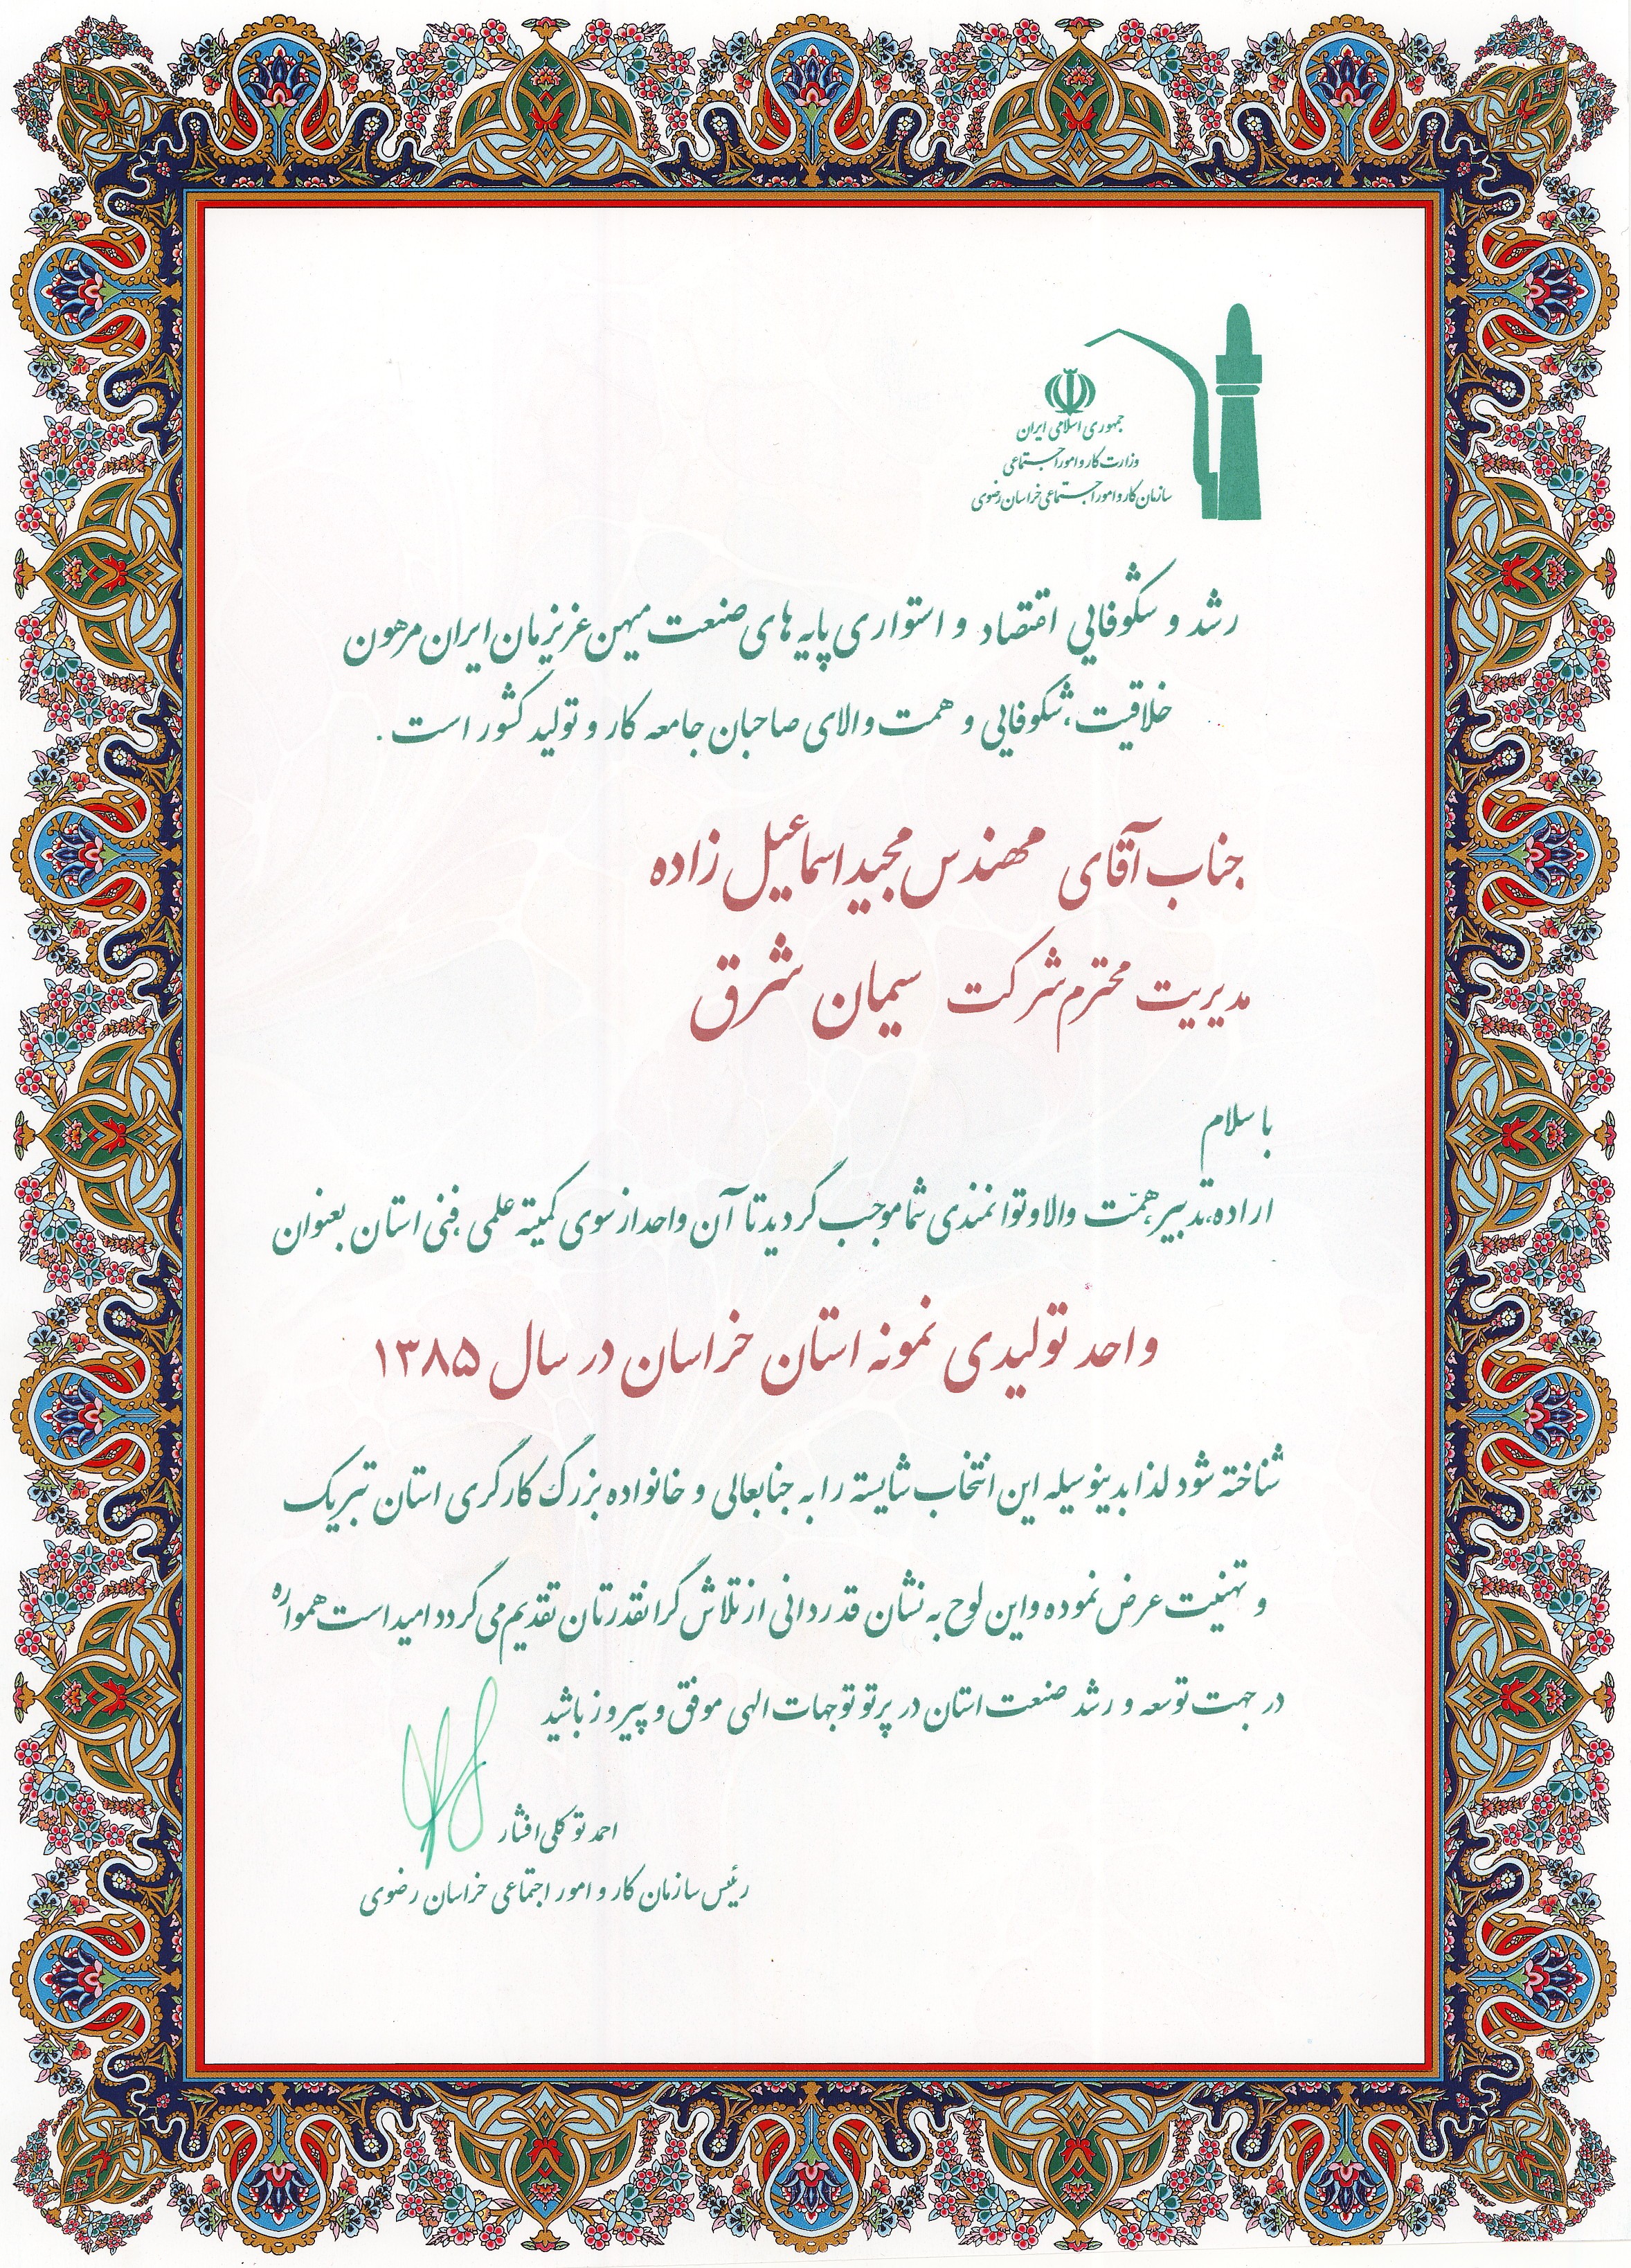 جمهوری اسلامی ایران
وزارت کار و امور اجتماعی
سازمان کار و امور اجتماعی خراسان رضوی
رشد و شکوفایی اقتصاد و استواری پایه های صنعت میهن عزیزمان ایران مرهون
خلاقیت، شکوفایی و همت والای صاحبان جامعه کار و تولید کشور است.
جناب آقای مهندس مجید اسماعیل زاده
مدیریت محترم شرکت سیمان شرق
با سلام
اراده، تدبیر، همّت والا و توانمندی شما موجب گردید تا آن واحد از سوی کمیته علمی، فنی استان بعنوان
واحد تولیدی نمونه استان خراسان در سال ۱۳۸۵
شناخته شود لذا بدینوسیله این انتخاب شایسته را به جنابعالی و خانواده بزرگ کارگری استان تبریک
و تهنیت عرض نموده و این لوح به نشان قدردانی از تلاش گرانقدرتان تقدیم می گردد امید است همواره
در جهت توسعه و رشد صنعت استان در پرتو توجهات الهی موفق و پیروز باشید
احمد توکلی افشار
رئیس سازمان کار و امور اجتماعی خراسان رضوی